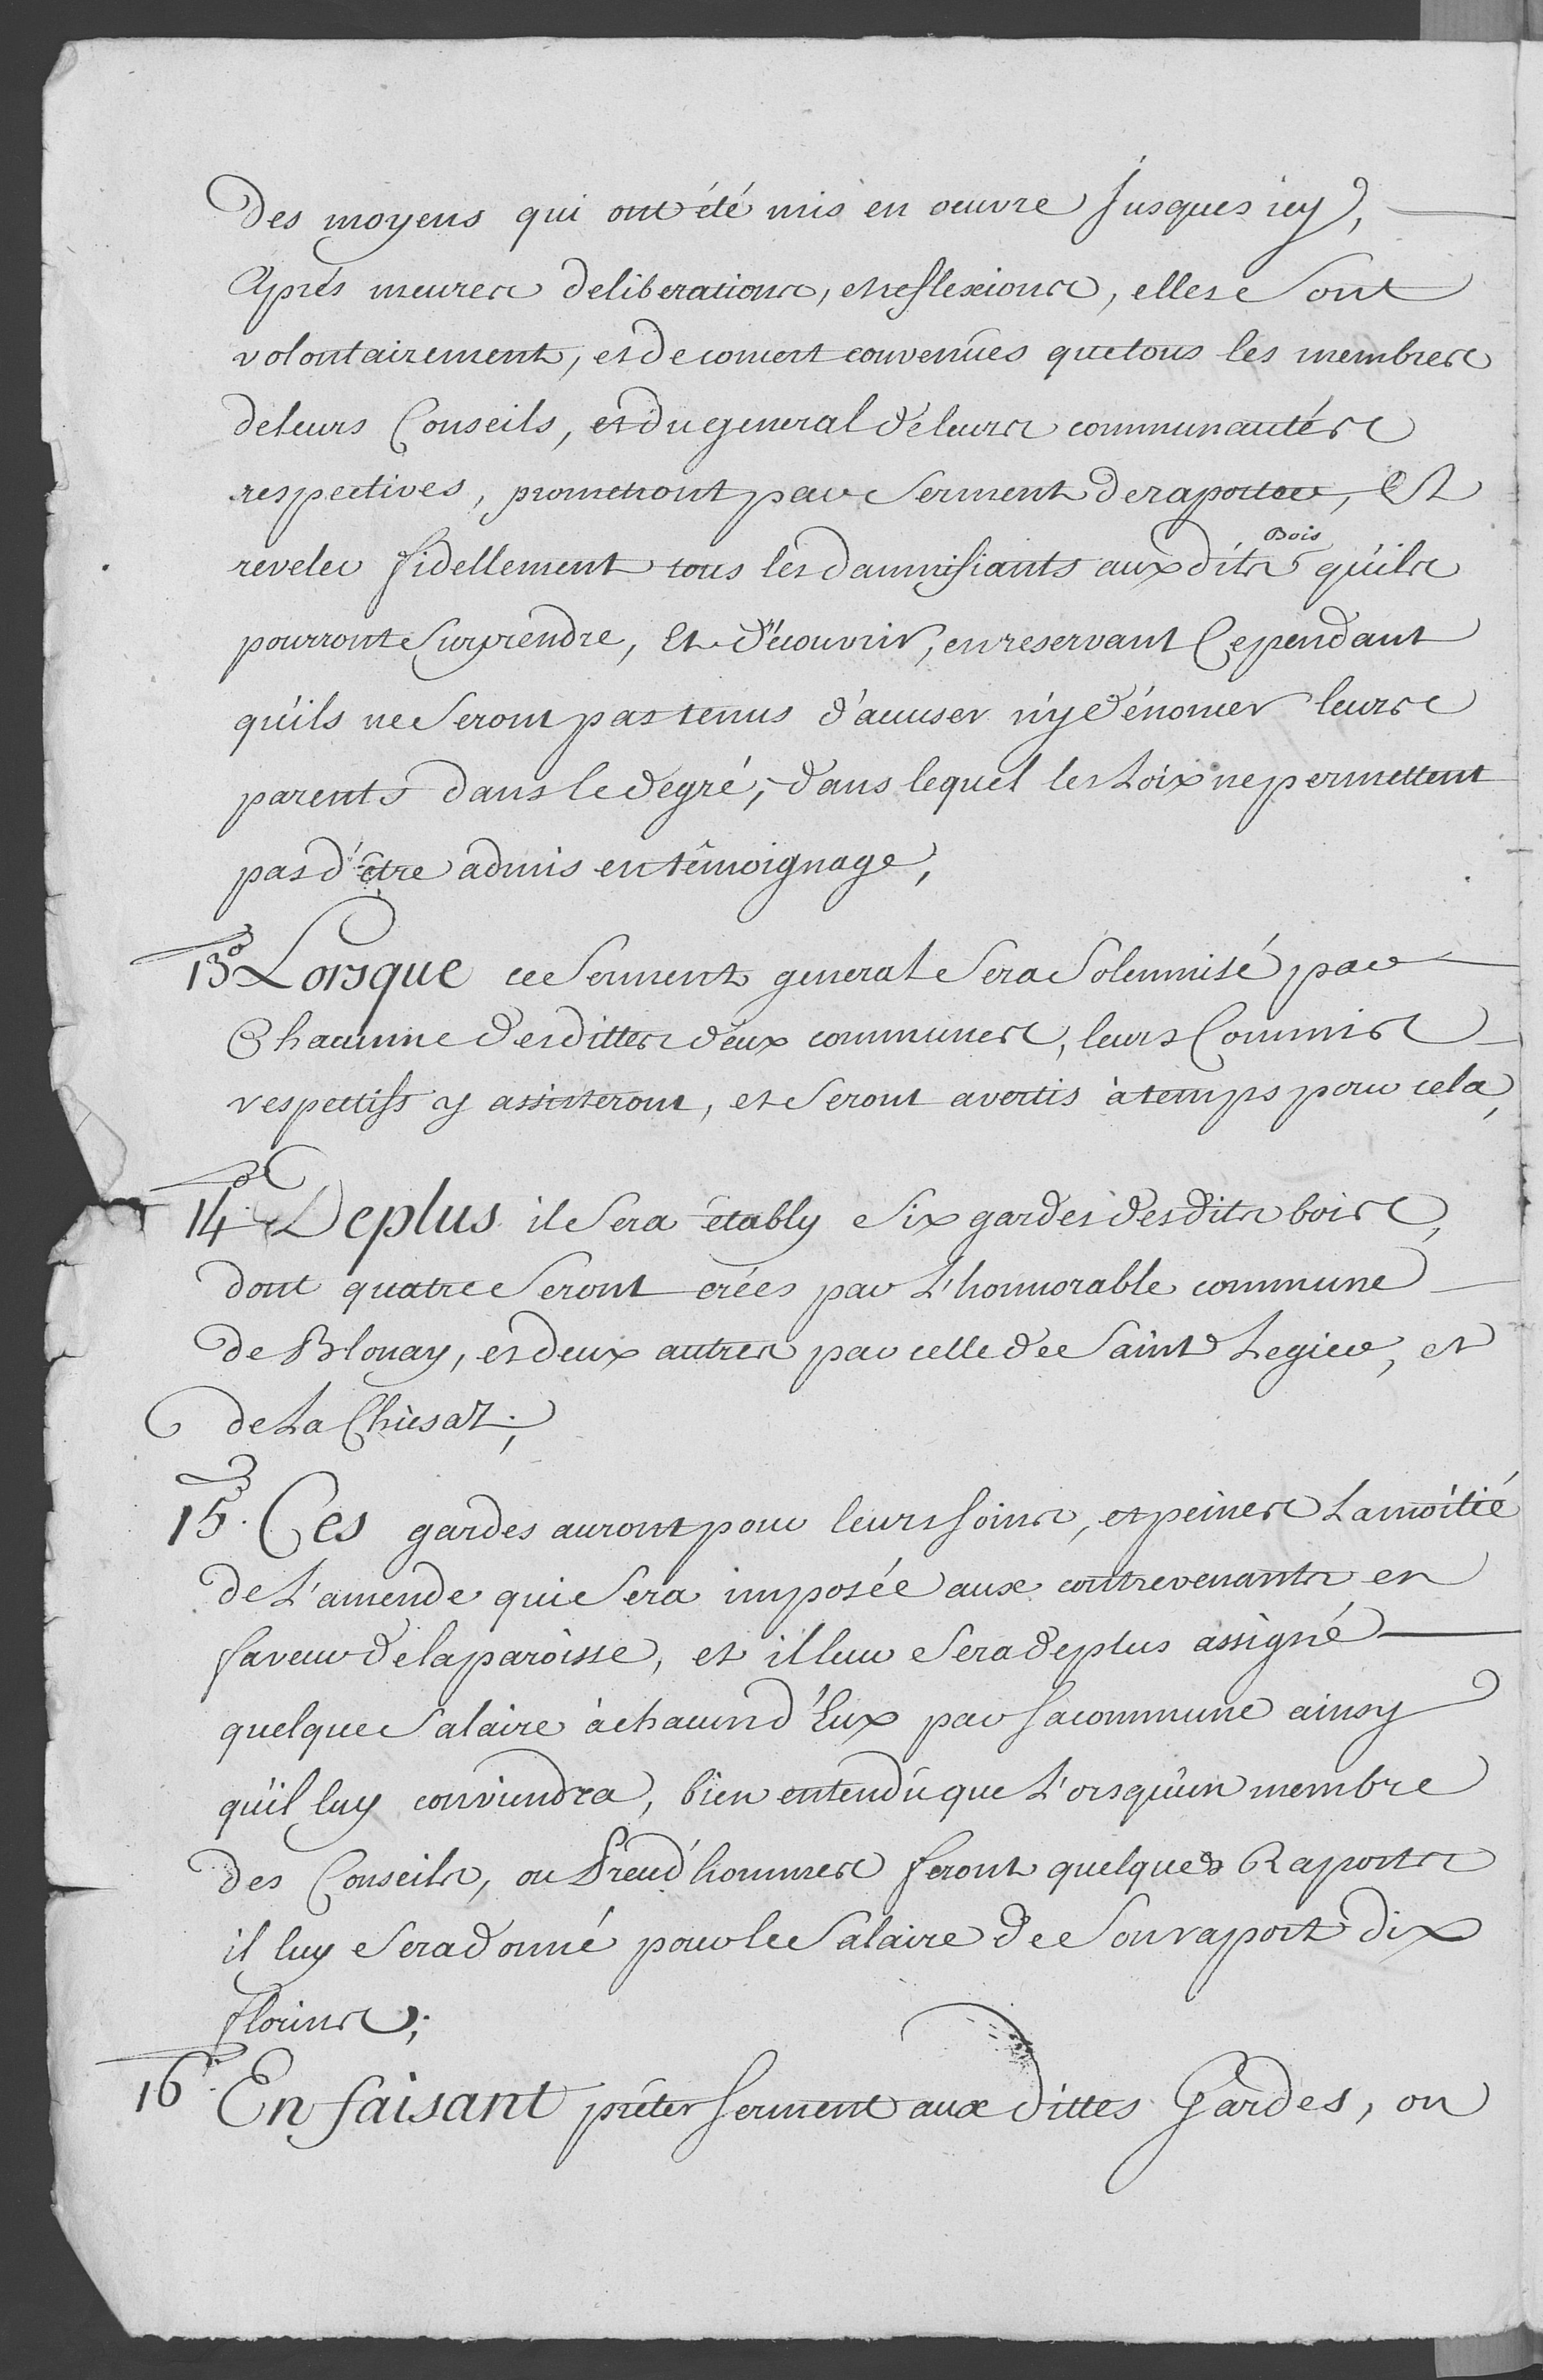 Des moyens qui ont été mis en oeuvre Jusques icy,
Aprés meures deliberations, et reflexions, elles Sont
volontairement, et de concert convenües que tous les membres
de leurs Conseils, et du general de leurs communautés
respectives, prometront par Serment de raporter, Et
reveler fidellement tous les damnifiants aux dits Bois qu'ils
pourront Surprendre, Et découvrir, en reservant Cependant
qu'ils ne Seront pas tenus d'acuser n'y dénoncer leurs
parents dans le degré, dans lequel les Loix ne permettent
pas d'être admis en témoignage,
13° Lorsque ce Serment general Sera Solemnisé par
Chacunne des dittes deux communes, leurs Commis
respectifs y assisteront, et Seront avertis à temps pour cela,
14° De plus il Sera établly Six gardes des dits bois,
dont quatre Seront crées par L'honnorable commune
de Blonay, et deux autres par celle de Saint Legier, et
de La Chiesaz;
15° Ces gardes auront pour leurs soins, et peines La moitié
de L'amende qui Sera imposée aux contrevenants en
faveur de la paroisse, et il leur Sera de plus assigné
quelque Salaire à chacun d'Eux par sa commune ainsy
qu'il luy conviendra, bien entendu que L'orsqu'un membre
des Conseils, ou Preud'hommes feront quelques Raports
il luy Sera donné pour le Salaire de Son raport dix
florins;
16° En faisant prêter serment aux dittes Gardes, on